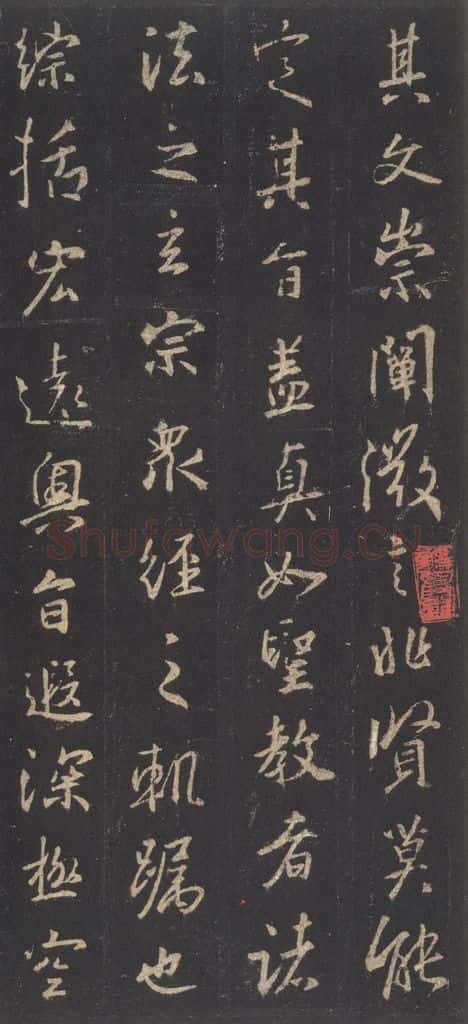 其文崇闡微言非賢莫能
定其旨盖真如聖教者諸
法之玄宗衆經之軌躅也
綜括宏遠奥旨遐深極空
Shufawang.CN